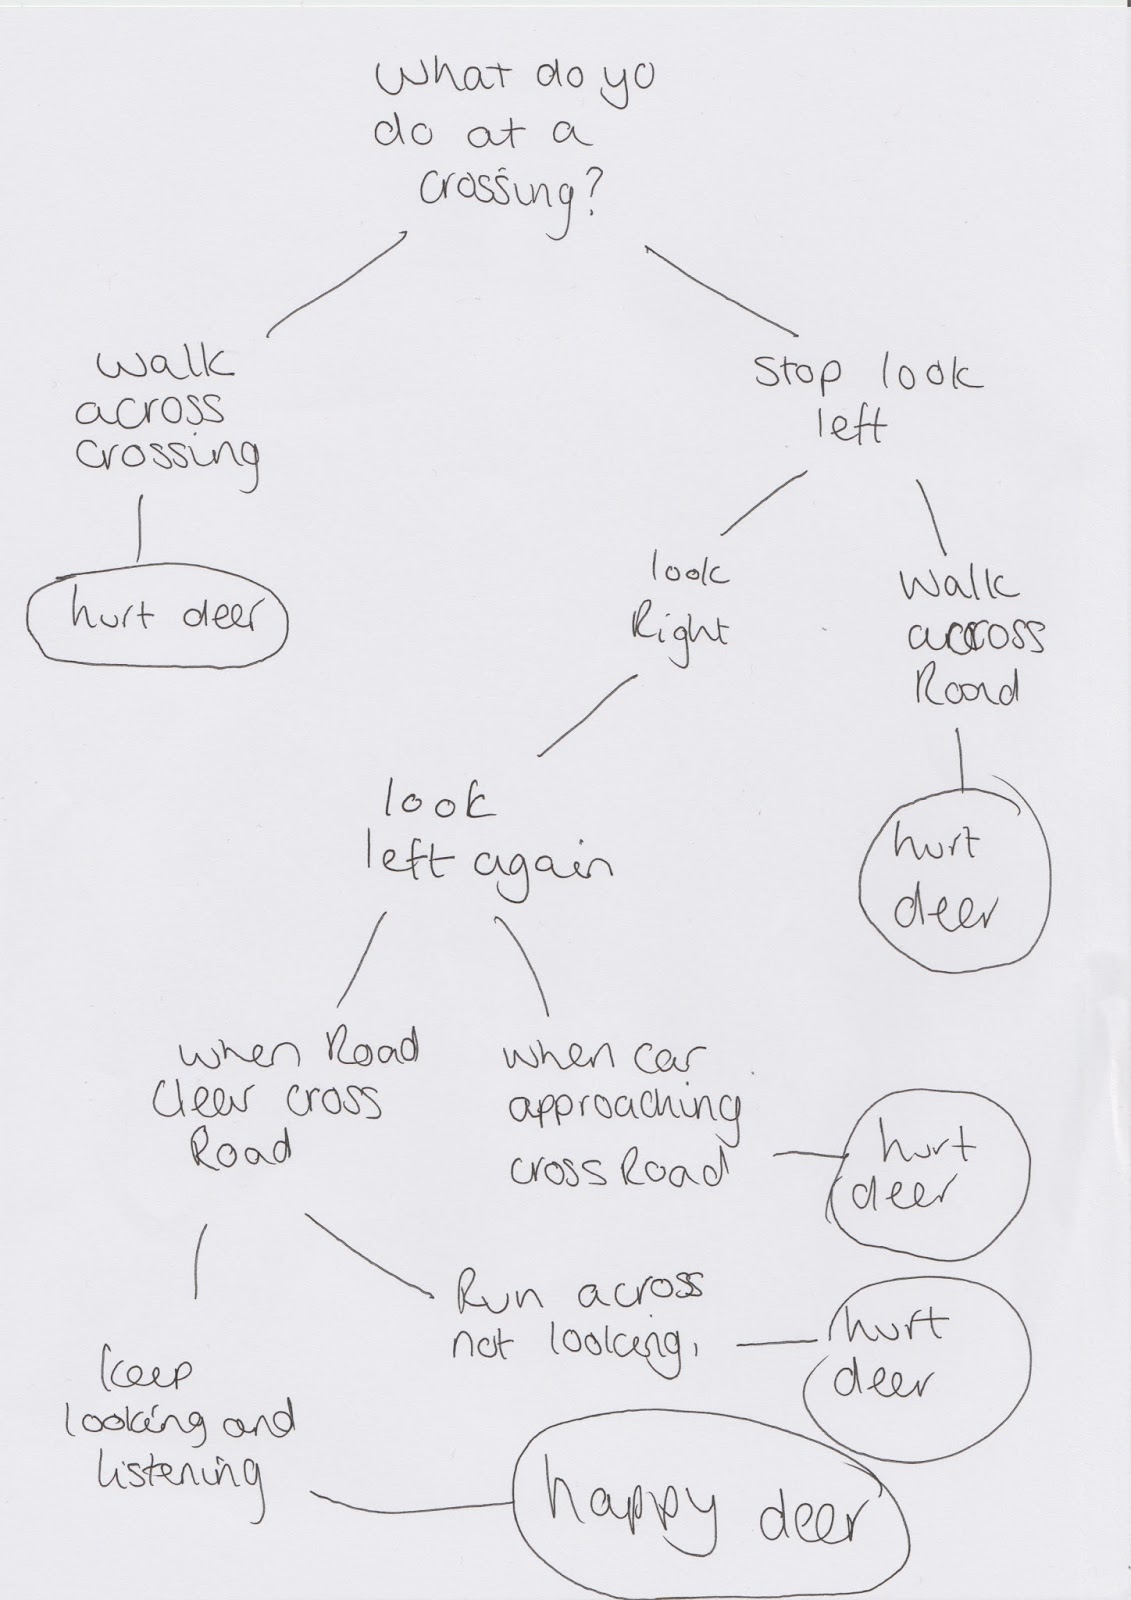 What do yo
do at a
crossing?
Walk
across
crossing
hurt deer
Stop look
left
look
Right
Walk
accross
Road
hurt
deer
look
left again
when Road
Clear cross
Road
when car
approaching
cross Road
hurt
deer
Run across
not looking,
hurt
deer
Keep
looking and
listening
happy deer